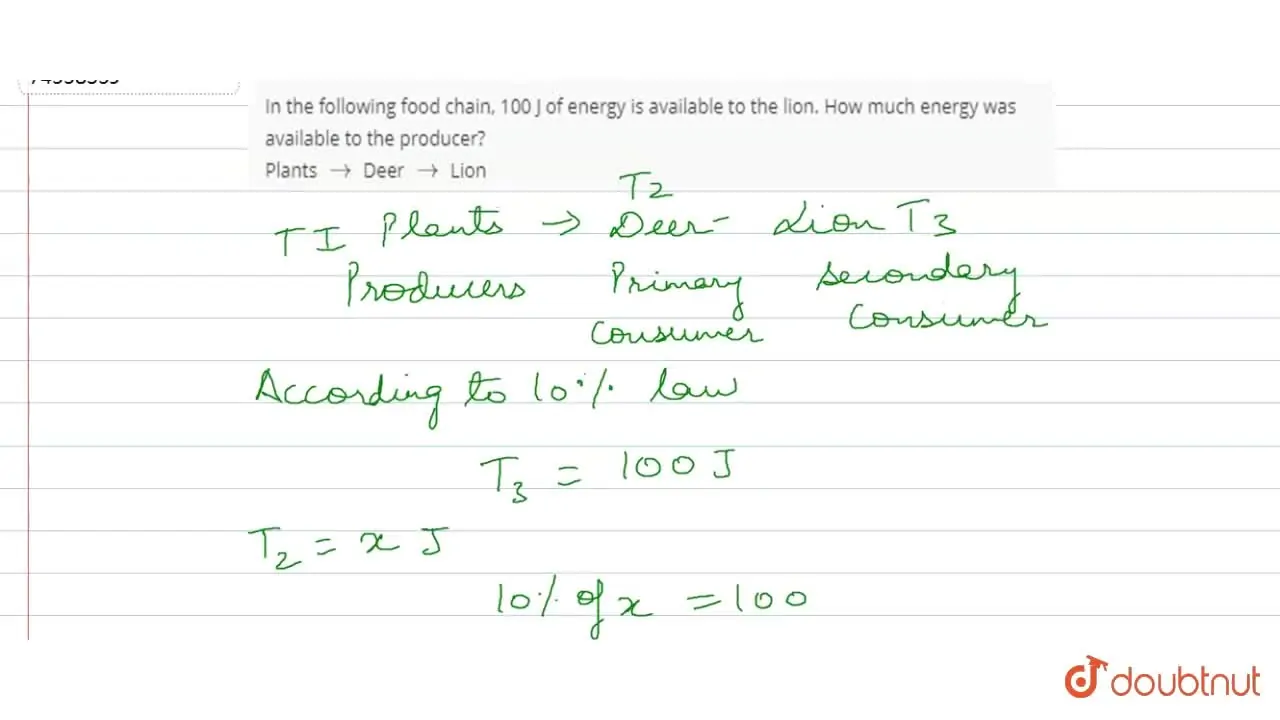 In the following food chain, 100 J of energy is available to the lion. How much energy was
available to the producer?
Plants → Deer → Lion
T2
TI Plants → Deer - Lion T3
Producers Primary secondary
consumer consumer
According to 10% law
T3 = 100 J
T2 = x J
10% of x = 100
doubtnut